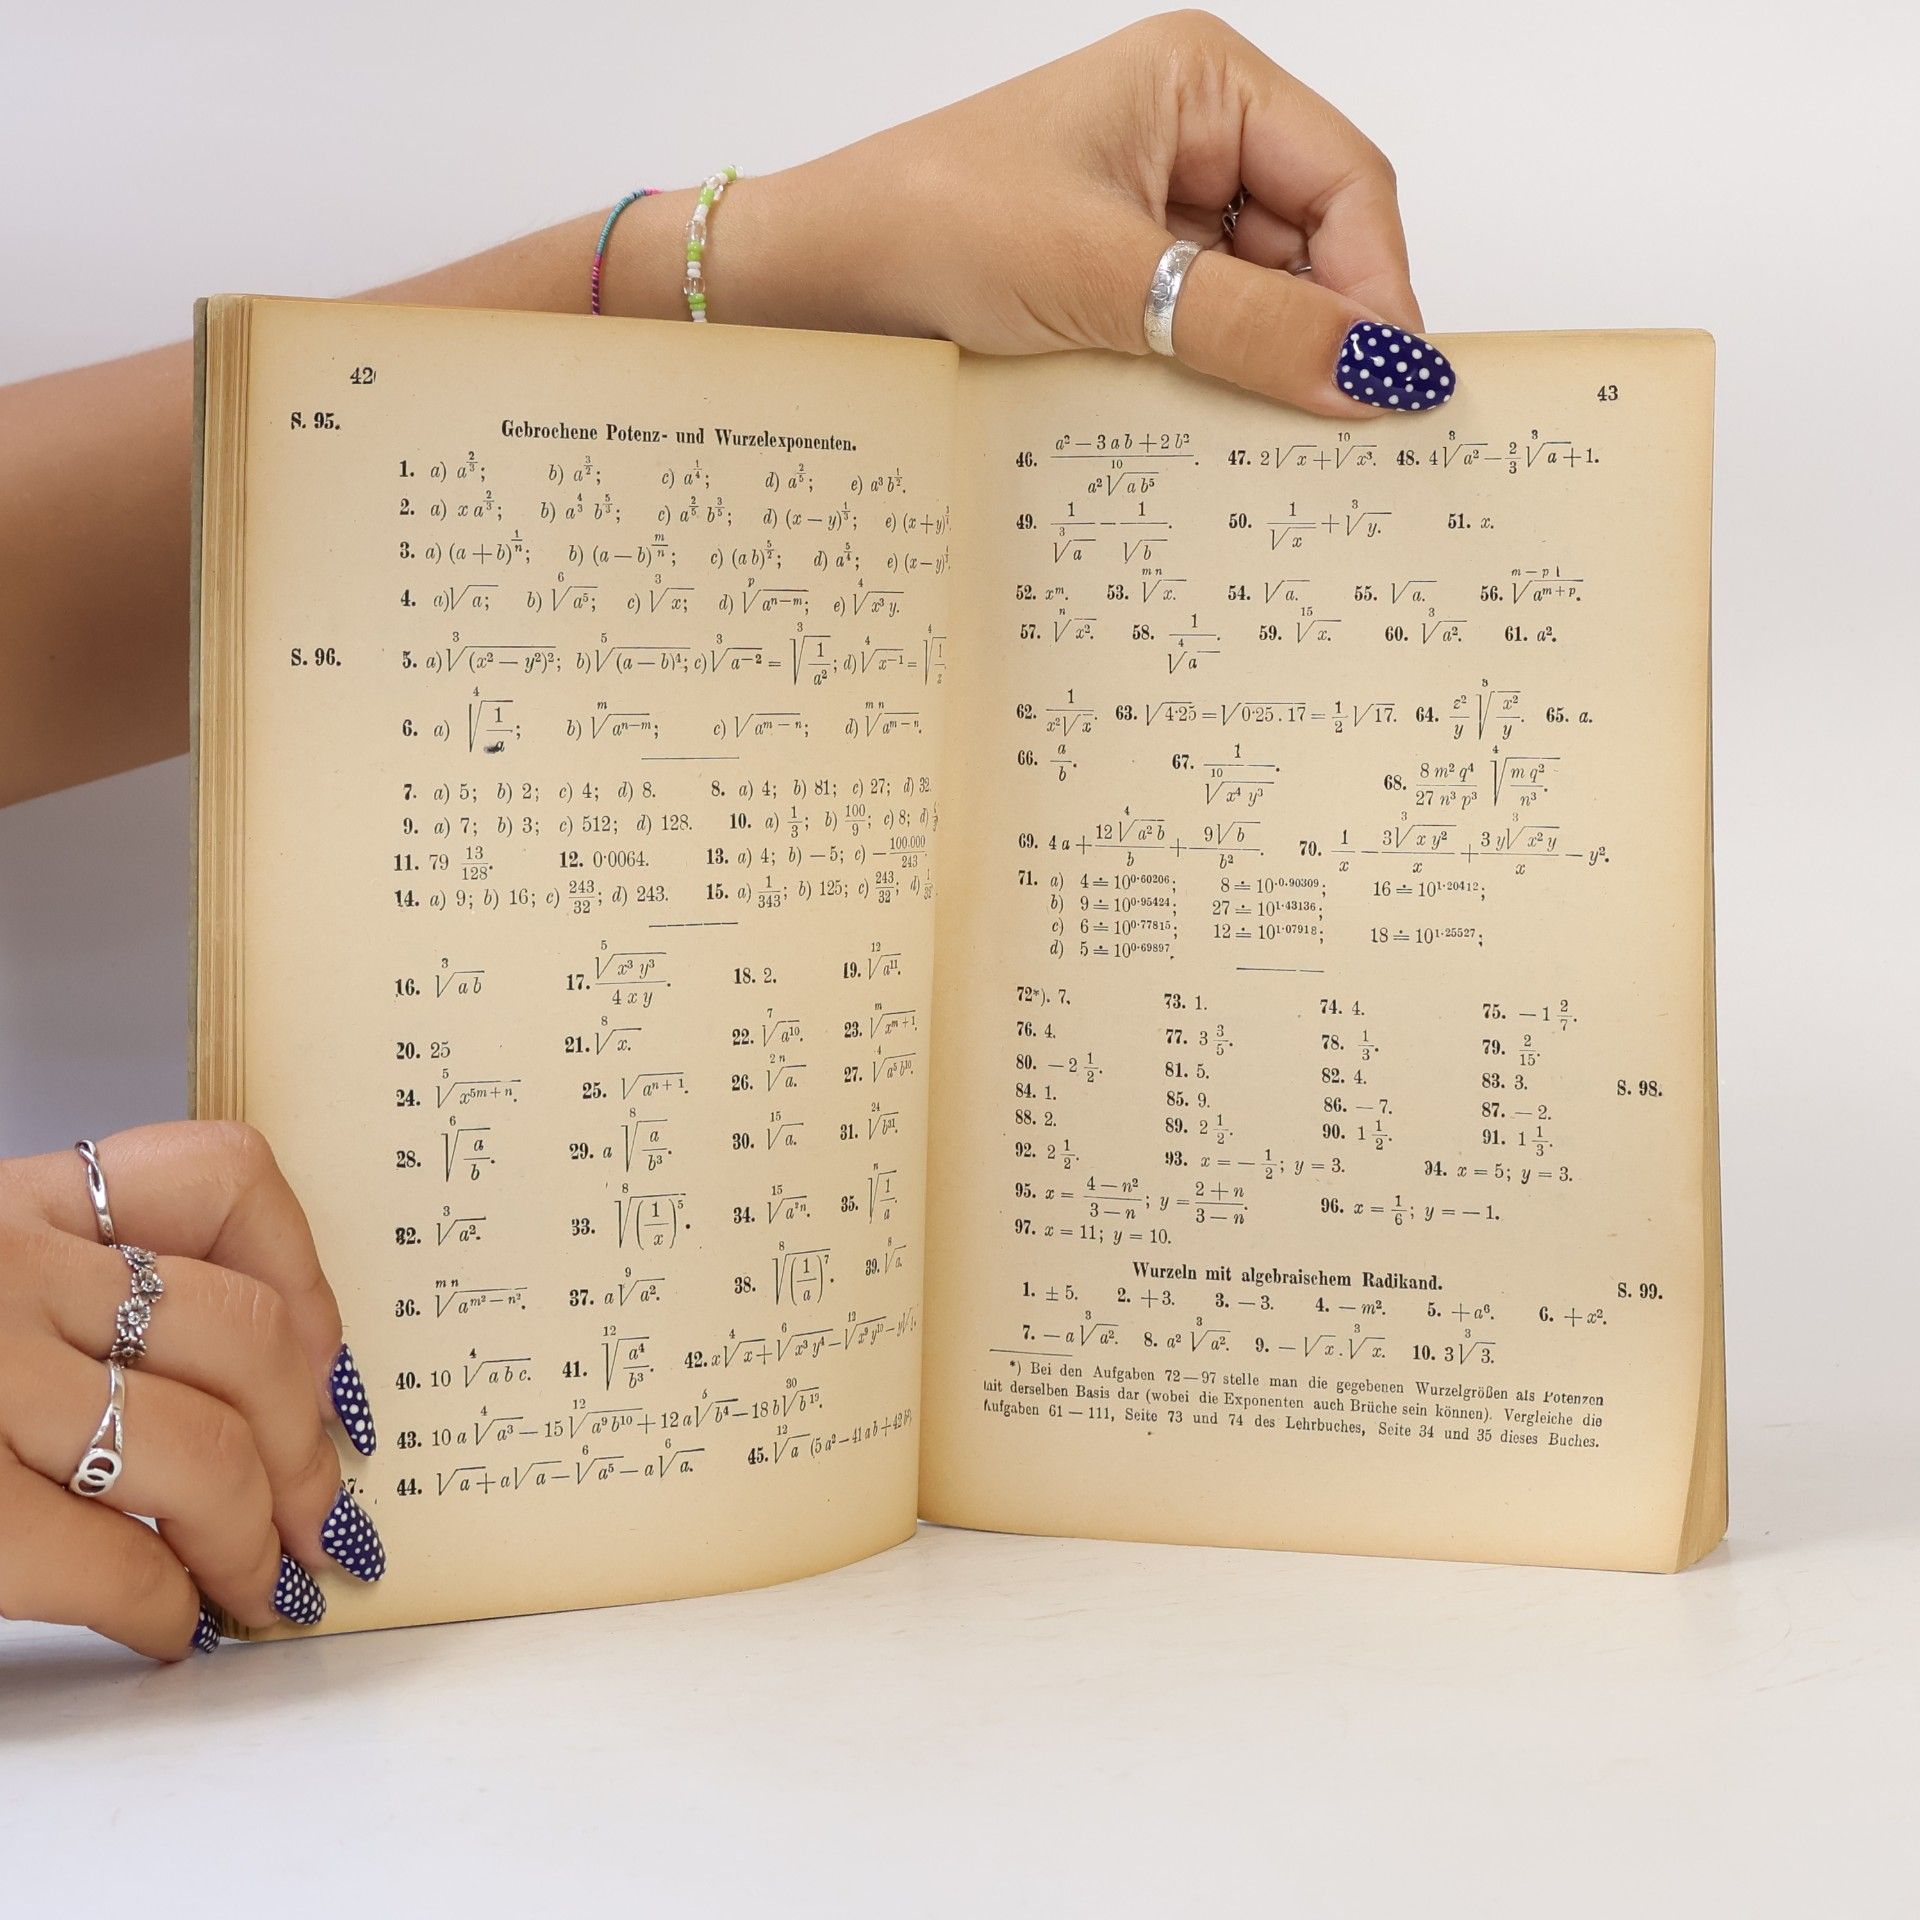 42
S. 95.
Gebrochene Potenz- und Wurzelexponenten.
1. a) a^(2/3); b) a^(3/2); c) a^(1/4); d) a^(2/5); e) a³ b^(1/2).
2. a) x a^(2/3); b) a^(4/3) b^(5/3); c) a^(2/5) b^(3/5); d) (x − y)^(1/3); e) (x + y)
3. a) (a + b)^(1/n); b) (a − b)^(m/n); c) (a b)^(5/2); d) a^(5/4); e) (x − y)
4. a) √a; b) ⁶√a⁵; c) ³√x; d) ᵖ√a^(n−m); e) ⁴√(x³ y).
S. 96.
5. a) ³√(x² − y²)²; b) ⁵√(a − b)⁴; c) ³√a^(−2) = ³√(1/a²); d) ⁴√x^(−1) =
6. a) ⁴√(1/a); b) ᵐ√a^(n−m); c) √a^(m−n); d) ᵐⁿ√a^(m−n).
7. a) 5; b) 2; c) 4; d) 8. 8. a) 4; b) 81; c) 27; d) 32.
9. a) 7; b) 3; c) 512; d) 128. 10. a) 1/3; b) 100/9; c) 8; d)
11. 79 13/128. 12. 0·0064. 13. a) 4; b) −5; c) −100.000/243.
14. a) 9; b) 16; c) 243/32; d) 243. 15. a) 1/343; b) 125; c) 243/32; d) 1/32.
16. ³√(a b) 17. ⁵√(x³ y³)/(4 x y). 18. 2. 19. ¹²√a¹¹.
20. 25 21. ⁸√x. 22. ⁷√a¹⁰. 23. ᵐ√x^(m+1).
24. ⁵√x^(5m+n). 25. √a^(n+1). 26. ²ⁿ√a. 27. ⁴√(a⁵ b¹⁰).
28. ⁶√(a/b). 29. a ⁸√(a/b³). 30. ¹⁵√a. 31. ²⁴√b³¹.
32. ³√a². 33. ⁸√(1/x)⁵. 34. ¹⁵√a^(7n). 35. ⁿ√(1/a).
36. ᵐⁿ√a^(m²−n²). 37. a ⁹√a². 38. ⁸√(1/a)⁷. 39. ⁸√a.
40. 10 ⁴√(a b c). 41. ¹²√(a⁴/b³). 42. x ⁴√x + ⁶√(x³ y⁴) − ¹²√(x⁹ y¹⁰) −
43. 10 a ⁴√a³ − 15 ¹²√(a⁹ b¹⁰) + 12 a ⁵√b⁴ − 18 b ³⁰√b¹⁹.
7. 44. √a + a√a − ⁶√a⁵ − a ⁶√a. 45. ¹²√a (5 a² − 41 a b + 42 b²)
43
46. (a² − 3 a b + 2 b²)/(a² ¹⁰√(a b⁵)). 47. 2√x + ¹⁰√x³. 48. 4 ³√a² − 2/3 ³√a + 1.
49. 1/³√a − 1/√b. 50. 1/√x + ³√y. 51. x.
52. xᵐ. 53. ᵐⁿ√x. 54. √a. 55. √a. 56. ᵐ⁻ᵖ√a^(m+p).
57. ⁿ√x². 58. 1/⁴√a. 59. ¹⁵√x. 60. ³√a². 61. a².
62. 1/(x²√x). 63. √4·25 = √(0·25 . 17) = 1/2 √17. 64. z²/y ³√(x²/y). 65. a.
66. a/b. 67. 1/¹⁰√(x⁴ y³). 68. (8 m² q⁴)/(27 n³ p³) ⁴√(m q²/n³).
69. 4 a + 12 ⁴√(a² b)/b + 9√b/b². 70. 1/x − 3 ³√(x y²)/x + 3 y ³√(x² y)/x − y².
71. a) 4 ≐ 10^0·60206; 8 ≐ 10^0·90309; 16 ≐ 10^1·20412;
b) 9 ≐ 10^0·95424; 27 ≐ 10^1·43136;
c) 6 ≐ 10^0·77815; 12 ≐ 10^1·07918; 18 ≐ 10^1·25527;
d) 5 ≐ 10^0·69897.
72*). 7. 73. 1. 74. 4. 75. −1 2/7.
76. 4. 77. 3 3/5. 78. 1/3. 79. 2/15.
80. −2 1/2. 81. 5. 82. 4. 83. 3. S. 98.
84. 1. 85. 9. 86. −7. 87. −2.
88. 2. 89. 2 1/2. 90. 1 1/2. 91. 1 1/3.
92. 2 1/2. 93. x = −1/2; y = 3. 94. x = 5; y = 3.
95. x = (4 − n²)/(3 − n); y = (2 + n)/(3 − n). 96. x = 1/6; y = −1.
97. x = 11; y = 10.
Wurzeln mit algebraischem Radikand. S. 99.
1. ± 5. 2. + 3. 3. − 3. 4. − m². 5. + a⁶. 6. + x².
7. − a ³√a². 8. a² ³√a². 9. − √x . ³√x. 10. 3 ³√3.
*) Bei den Aufgaben 72 — 97 stelle man die gegebenen Wurzelgrößen als Potenzen
mit derselben Basis dar (wobei die Exponenten auch Brüche sein können). Vergleiche die
Aufgaben 61 — 111, Seite 73 und 74 des Lehrbuches, Seite 34 und 35 dieses Buches.